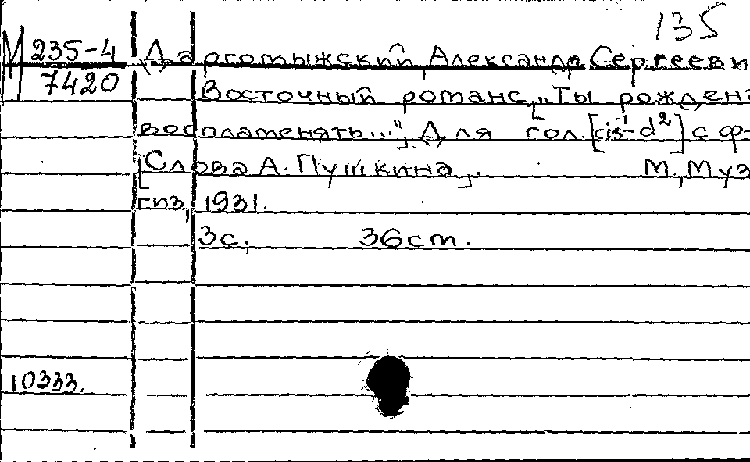 135
М 235-4 Даргомыжский Александр Сергееви
7420 Восточный романс [„Ты рождена
воспламенять..."]. Для гол. [cis¹-d²] с ф-
[Слова А. Пушкина]. М., Муз
гиз, 1931.
3с. 36 cm.
10333.